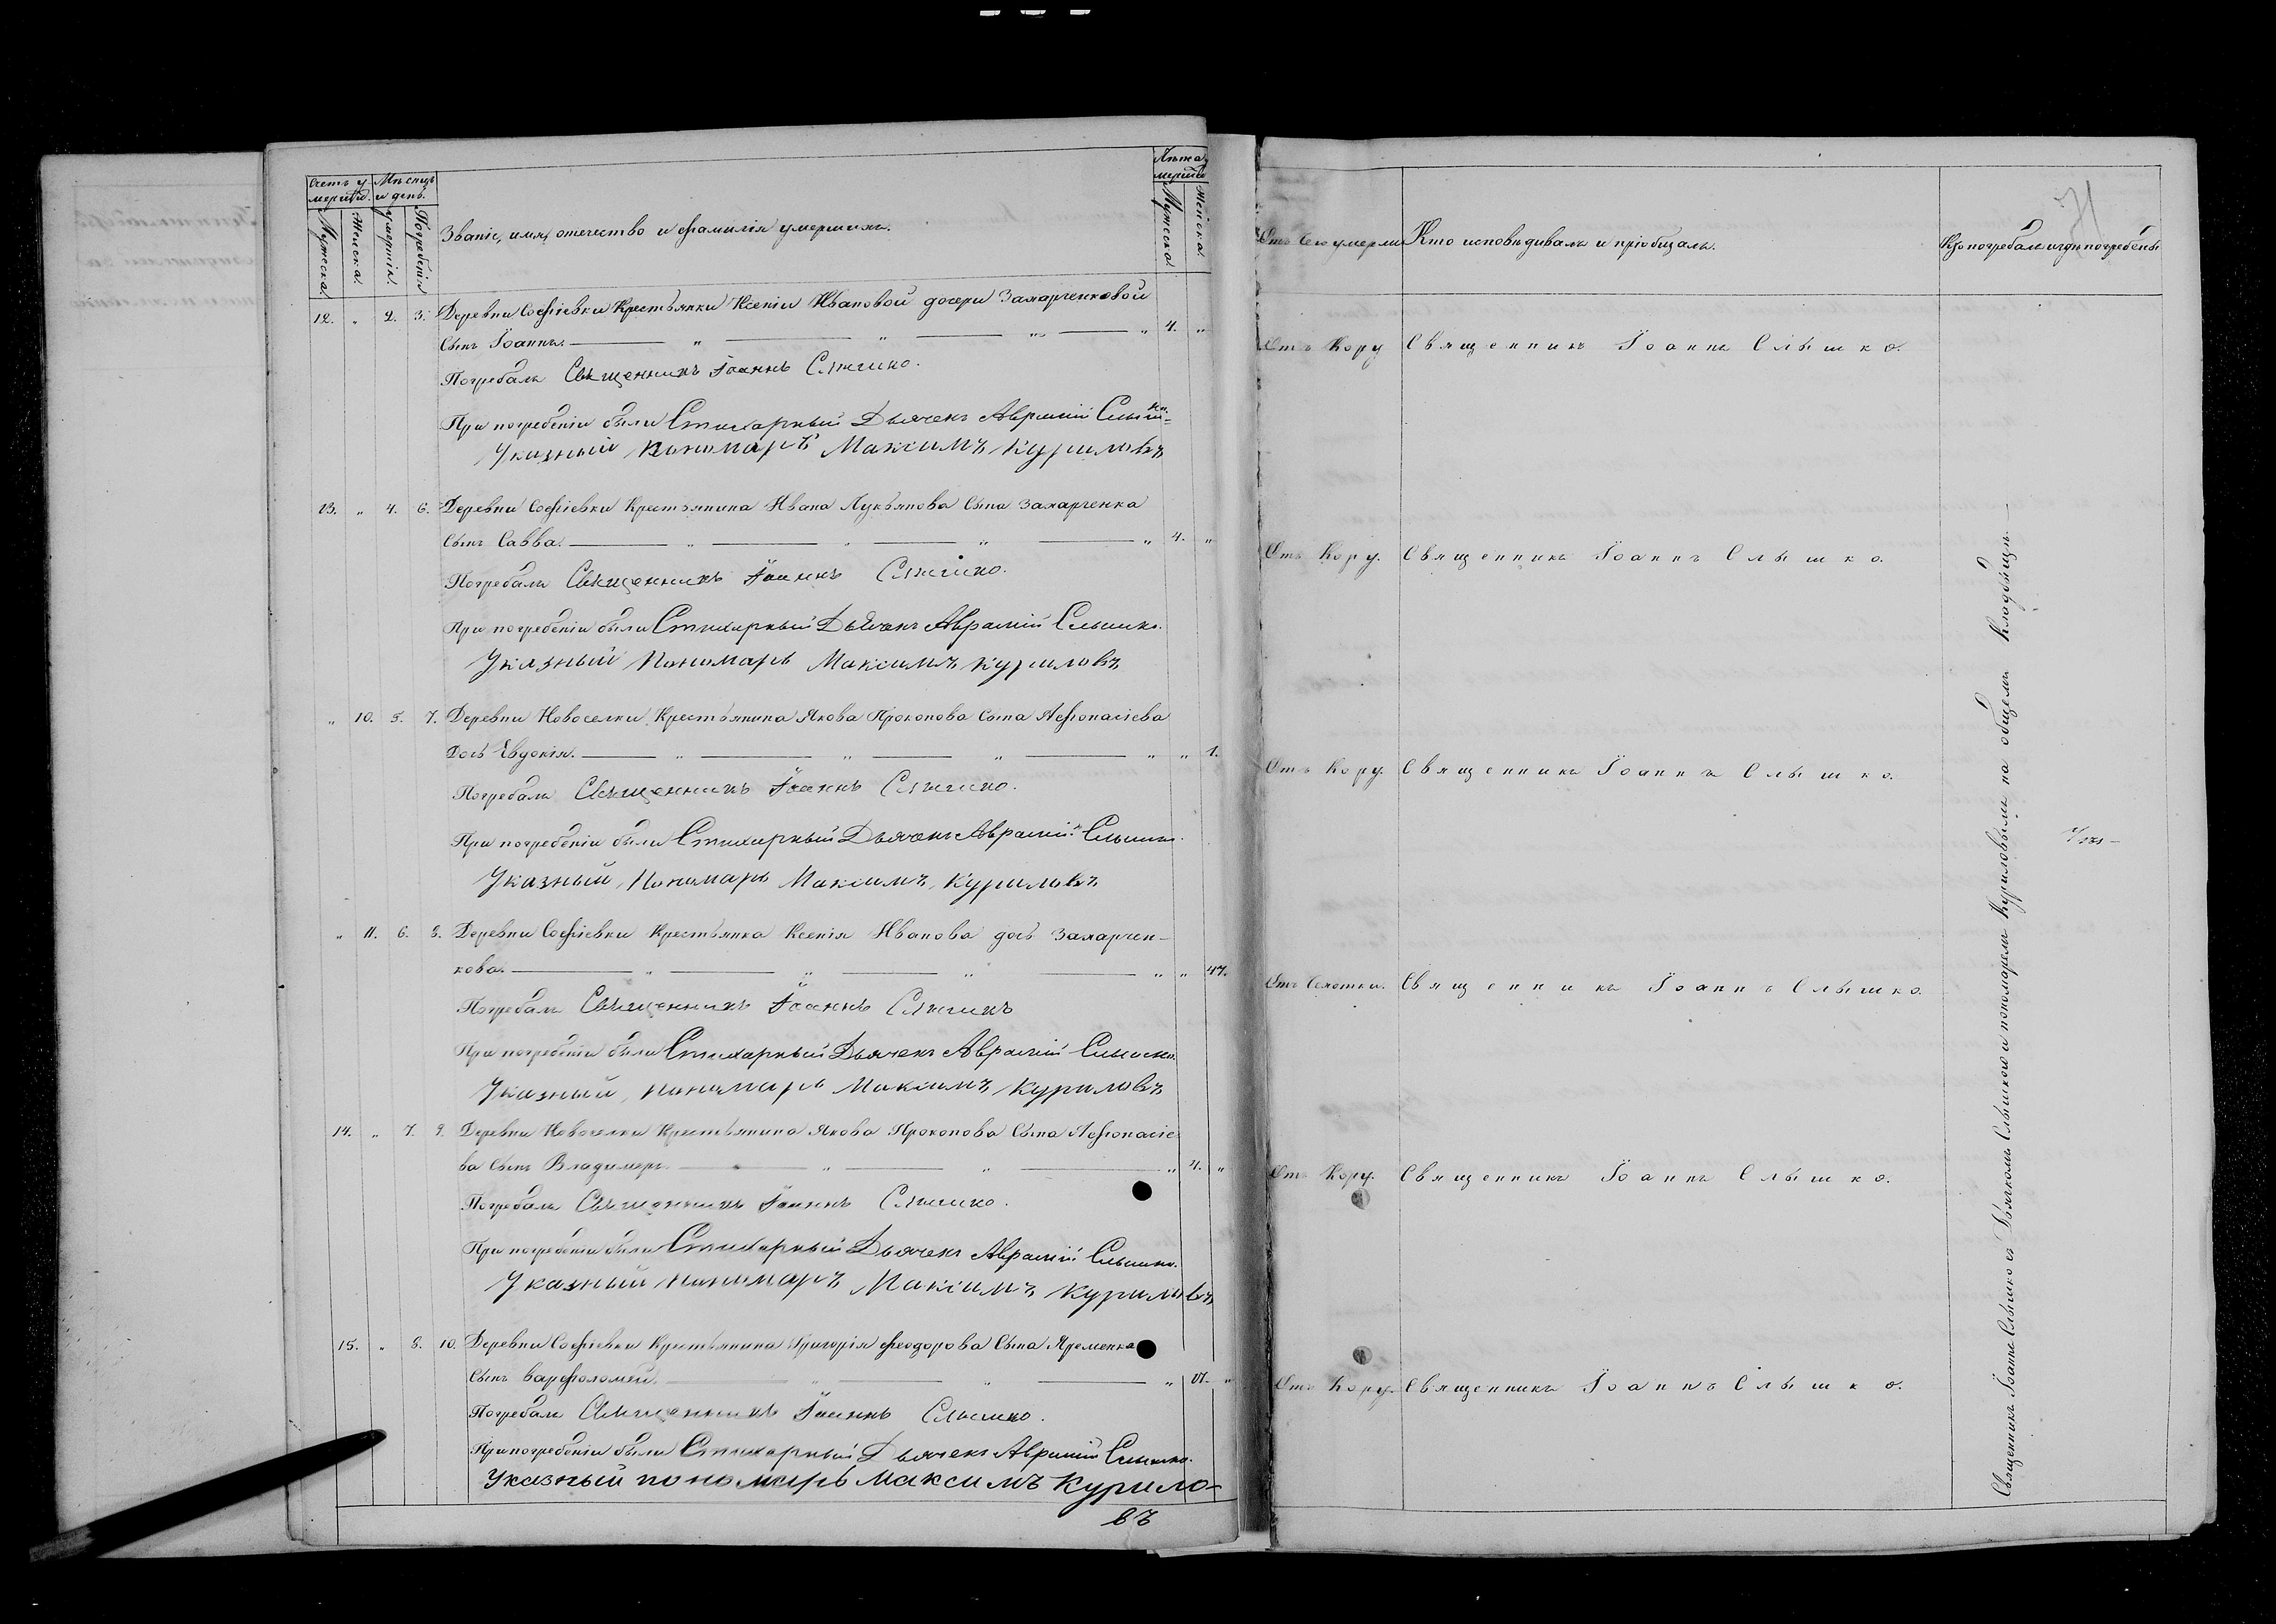 Счетъ у-
мершихъ.
Мѣсяцъ
и день.
Лѣта у-
мершихъ
Мужеска.
Женска.
умертія.
Погребенія
Званіе, имя, отечество и фамилія умершихъ.
Мужеска.
Женска.
Отъ чего умерли
Кто исповѣдывалъ и пріобщалъ.
Кто погребалъ и гдѣ погребены
12. „ 2. 3. Деревни Софіевки Крестьянки Ксеніи Ивановой дочери Захарченковой
Сынъ Іоаннъ. „ „ „ „ 4. „
Отъ Кору Священникъ Іоаннъ Слышко.
Погребалъ Священникъ Іоаннъ Слышко.
При погребеніи были Стихарный Дьячекъ Аврамій Слышко.
Указный Пономарь Максимъ Куриловъ
13. „ 4. 6. Деревни Софіевки Крестьянина Ивана Лукьянова Сына Захарченка
Сынъ Савва. „ „ „ „ 4. „
Отъ Кору. Священникъ Іоаннъ Слышко.
Погребалъ Священникъ Іоаннъ Слышко.
При погребеніи были Стихарный Дьячекъ Аврамій Слышко.
Указный Пономарь Максимъ Куриловъ
„ 10. 5. 7. Деревни Новоселки Крестьянина Якова Прокопова Сына Афонасіева
Дочь Евдокія. „ „ „ „ „ 1.
Отъ Кору. Священникъ Іоаннъ Слышко.
Погребалъ Священникъ Іоаннъ Слышко.
При погребеніи были Стихарный Дьячекъ Аврамій Слышко.
Указный Пономарь Максимъ Куриловъ
„ 11. 6. 8. Деревни Софіевки Крестьянка Ксенія Иванова дочь Захарчен-
кова. „ „ „ „ „ 47.
Священникъ Іоаннъ Слышко.
Погребалъ Священникъ Іоаннъ Слышко
При погребеніи были Стихарный Дьячекъ Аврамій Слышко.
Указный Пономарь Максимъ Куриловъ
14. „ 7. 9. Деревни Новоселки Крестьянина Якова Прокопова Сына Афонасіе-
ва Сынъ Владимеръ. „ „ „ 4. „
Отъ Кору. Священникъ Іоаннъ Слышко.
Погребалъ Священникъ Іоаннъ Слышко.
При погребеніи были Стихарный Дьячекъ Аврамій Слышко.
Указный Пономарь Максимъ Куриловъ
15. „ 8. 10. Деревни Софіевки Крестьянина Григорія Феодорова Сына Яременка
Сынъ Варфоломей. „ „ „
Отъ Кору. Священникъ Іоаннъ Слышко.
Погребалъ Священникъ Іоаннъ Слышко.
При погребеніи были Стихарный Дьячекъ Аврамій Слышко.
Указный пономарь Максимъ Курило-
въ
Священникъ Іоаннъ Слышко съ Дьячкомъ Слышкою и пономаремъ Куриловымъ на общемъ Кладбищѣ.